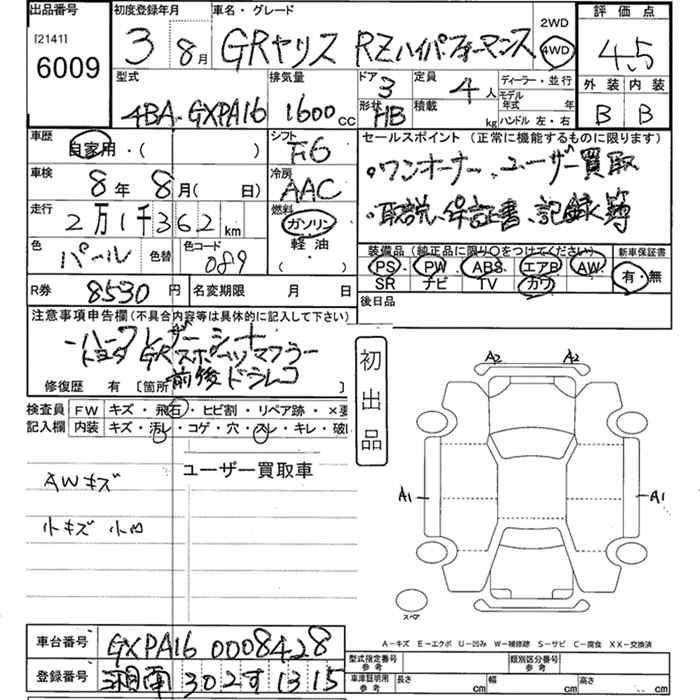 出品番号 初度登録年月 車名・グレード 評価点
[2141] 6009 3 8月 GRヤリス RZハイパフォーマンス 2WD 4WD 4.5
型式 排気量 ドア 3 定員 4人 ディーラー・並行 外装 内装
4BA-GXPA16 1600cc 形状 HB 積載 kg モデル年式 年 B B
ハンドル 左・右
車歴 自家用・( ) シフト F6 セールスポイント (正常に機能するものに限ります)
車検 8年 8月( 日) 冷房 AAC ・ワンオーナー、ユーザー買取
走行 2万1千362km 燃料 ガソリン ・取説、保証書、記録簿
軽油
色 パール 色替 色コード 089 ( ・ ) 装備品(純正品に限り○をつけてください) 新車保証書
PS・PW・ABS・エアB・AW 有・無
SR ナビ TV カワ
R券 8530円 名変期限 月 日 後日品
注意事項申告欄(不具合内容等は具体的に記入して下さい)
ハーフレザーシート
トヨタ GRスポーツマフラー
前後ドラレコ
修復歴 有 [箇所
初出品
検査員 FW キズ・飛石・ヒビ割・リペア跡・×要
記入欄 内装 キズ・汚レ・コゲ・穴・スレ・キレ・破レ
ユーザー買取車
AWキズ
小キズ 小凹
A2 A2
A1 A1
スペア
A-キズ E-エクボ U-凹み W-補修跡 S-サビ C-腐食 XX-交換済
車台番号 GXPA16 0008428 型式指定番号 参考 類別区分番号 参考
登録番号 湘南 302 す 1315 車庫証明用 参考 長さ cm 幅 cm 高さ cm